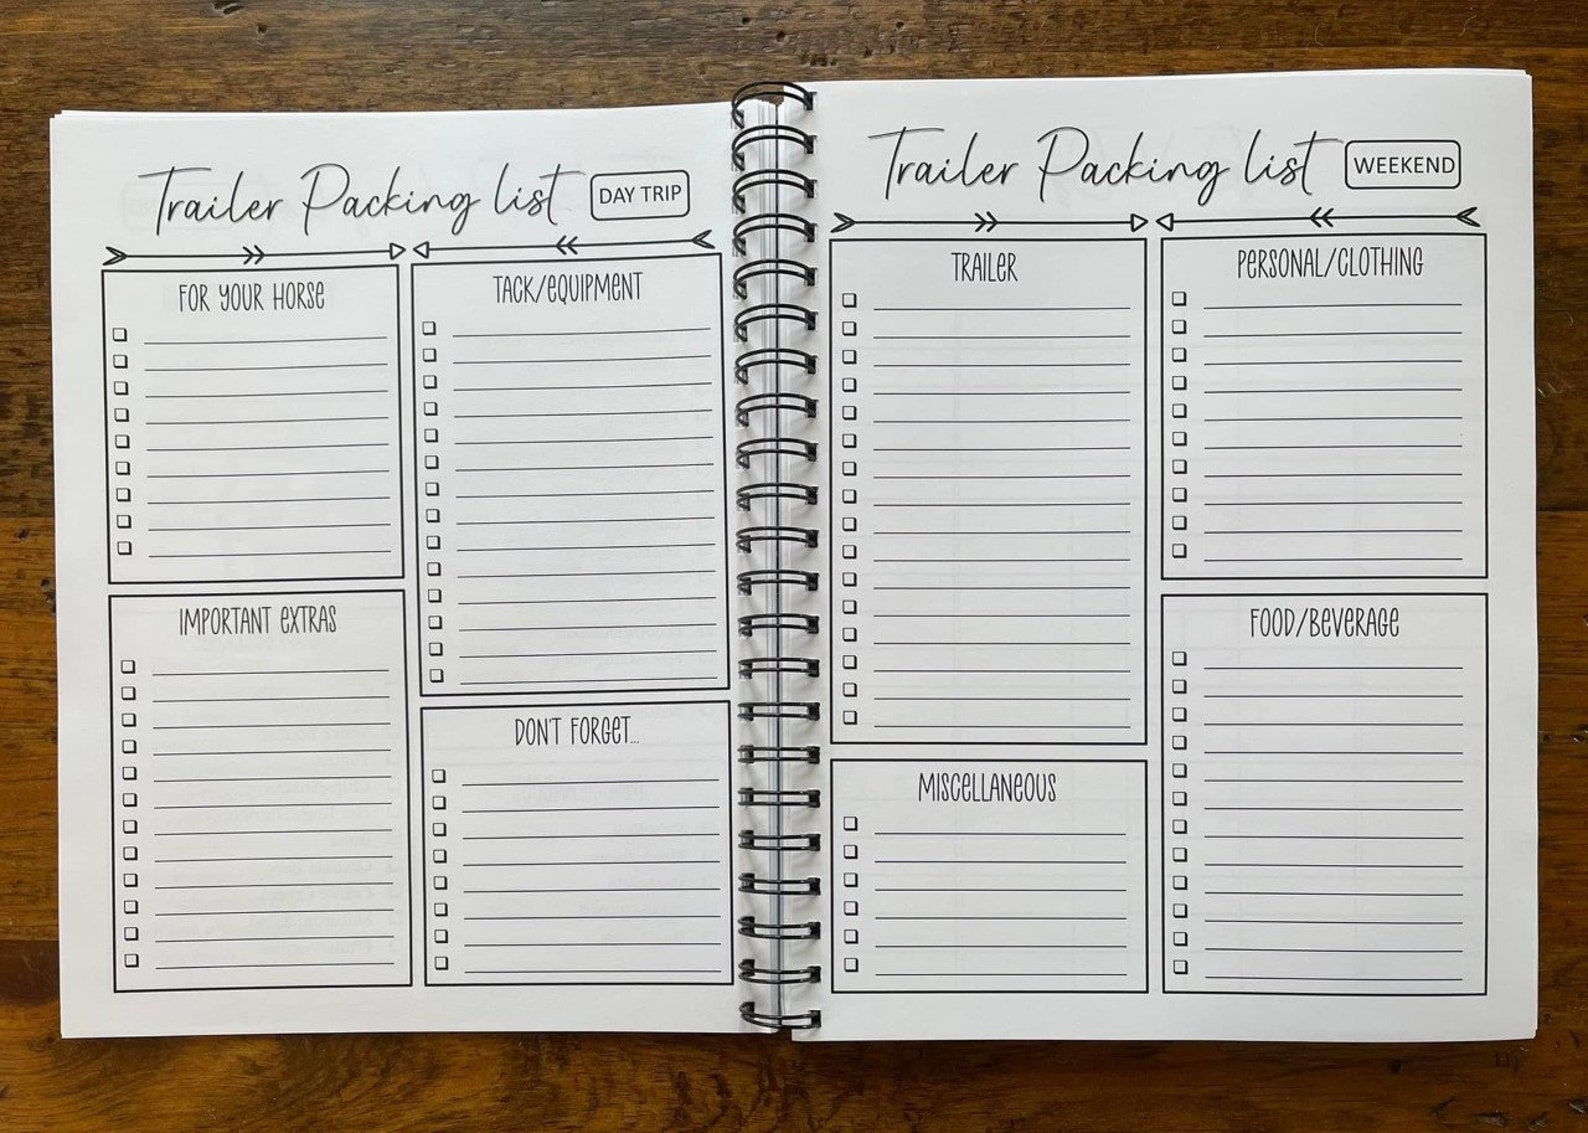 Trailer Packing list
DAY TRIP
FOR YOUR HORSE
TACK/EQUIPMENT
IMPORTANT EXTRAS
DON'T FORGET...
Trailer Packing list
WEEKEND
TRAILER
PERSONAL/CLOTHING
MISCELLANEOUS
FOOD/BEVERAGE